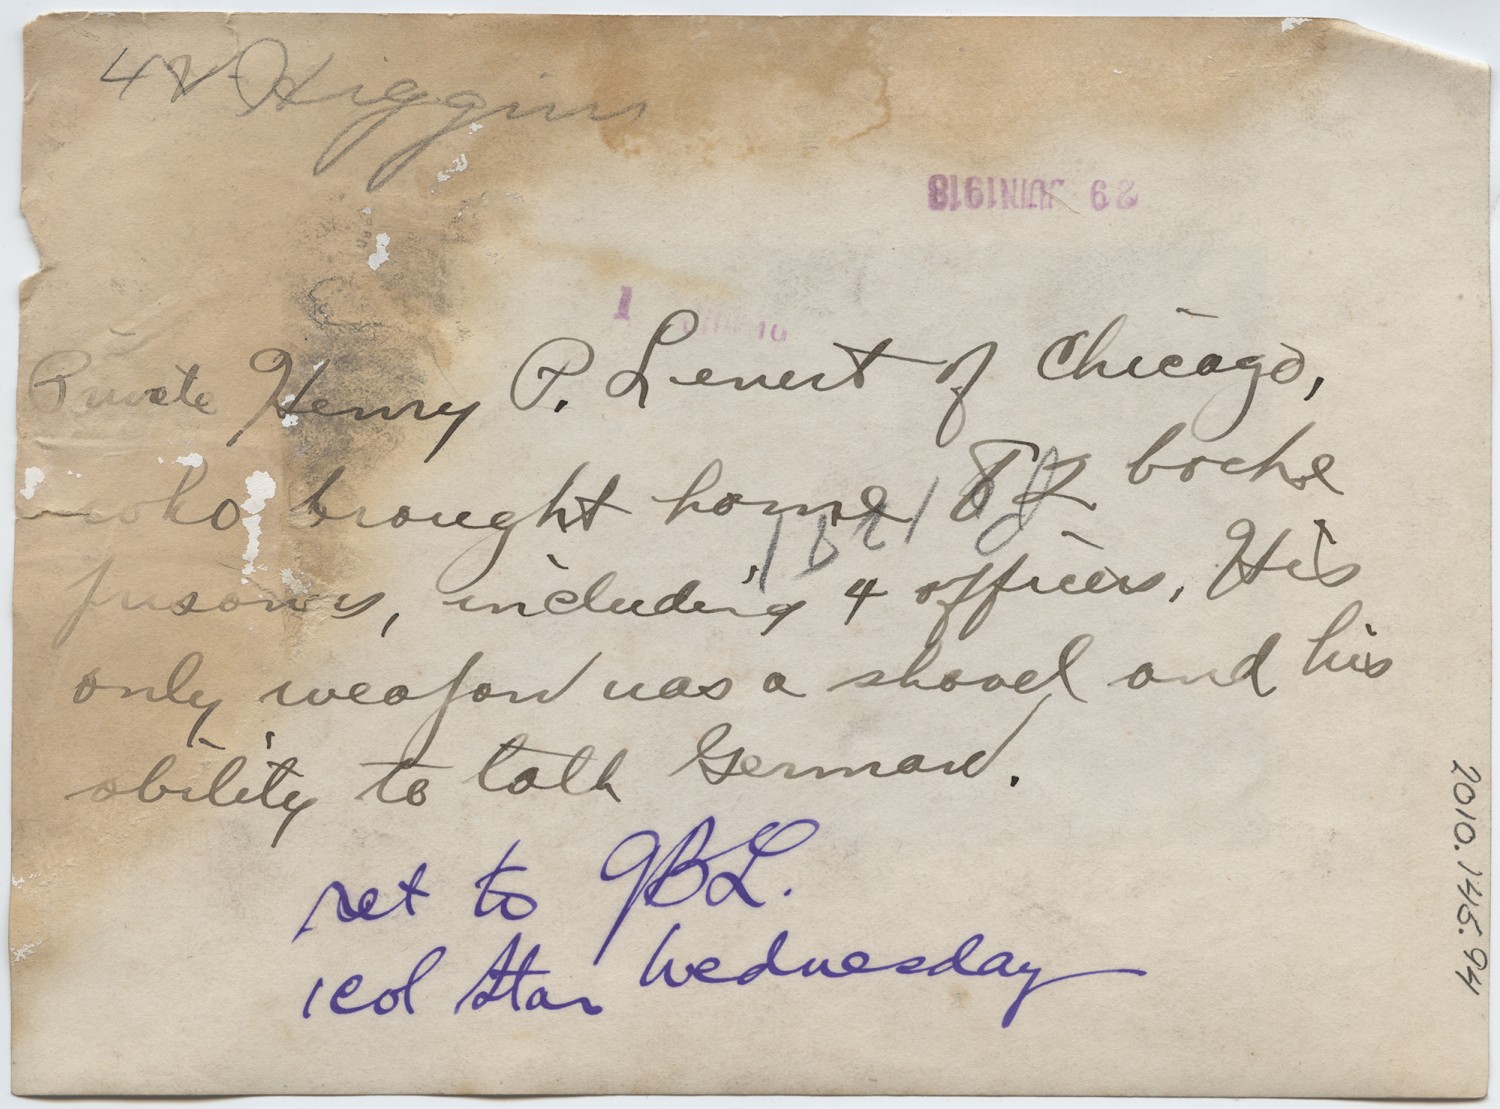 Higgins
29 JUN 1918
1
Private Henry P. Lenert of Chicago,
who brought home 82 boche
prisoners, including 4 officers, His
only weapon was a shovel and his
ability to talk German.
ret to GBL.
1 col Star Wednesday
2010.146.94